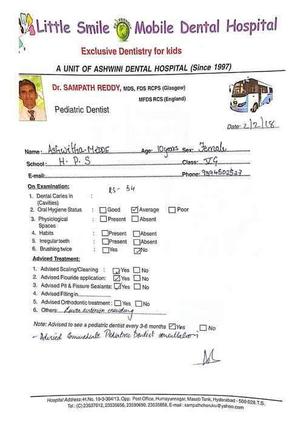 Little Smile Mobile Dental Hospital
Exclusive Dentistry for kids
A UNIT OF ASHWINI DENTAL HOSPITAL (Since 1997)
Dr. SAMPATH REDDY, MDS, FDS RCPS (Glasgow)
MFDS RCS (England)
Pediatric Dentist
Date: 2/2/18
Name: Age: 10 years Sex: Female
School: H.P.S Class:
E-mail: Phone:
On Examination:
1. Dental Caries in (Cavities)
2. Oral Hygiene Status Good Average Poor
3. Physiological Spaces Present Absent
4. Habits Present Absent
5. Irregular teeth Present Absent
6. Brushing twice Yes No
Advised Treatment:
1. Advised Scaling/Cleaning Yes No
2. Advised Flouride application Yes No
3. Advised Pit & Fissure Sealants Yes No
4. Advised Filling in
5. Advised Orthodontic treatment Yes No
6. Others: Lower anterior crowding
Note: Advised to see a pediatric dentist every 3-6 months Yes No
- Advised Immediate Pediatric Dentist consultation
Hospital Address: H.No. 19-3-304/13, Opp. Post Office, Humayunnagar, Masab Tank, Hyderabad - 500 028. T.S.